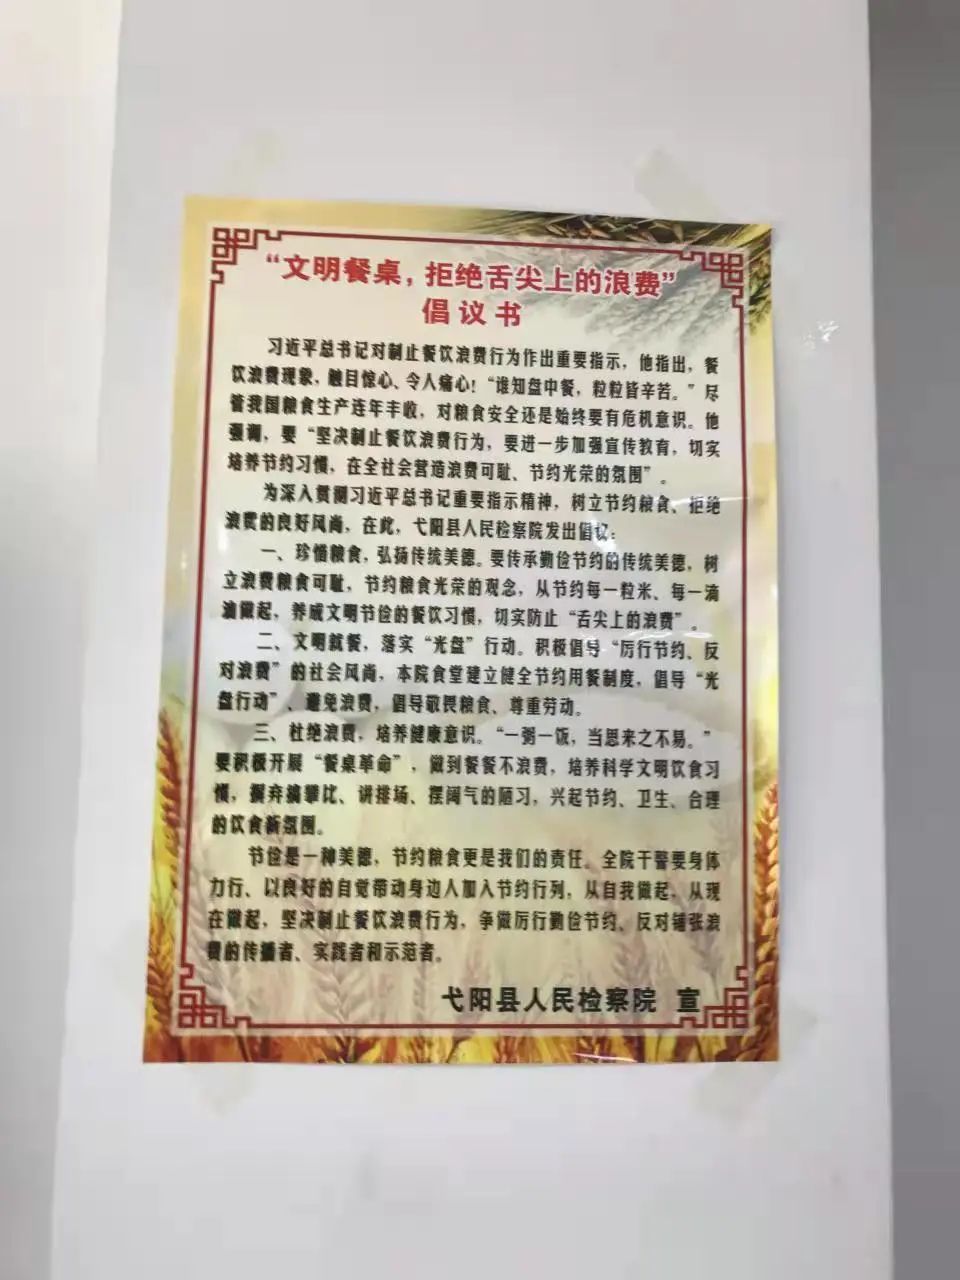 “文明餐桌，拒绝舌尖上的浪费”
倡议书
习近平总书记对制止餐饮浪费行为作出重要指示，他指出，餐
饮浪费现象，触目惊心、令人痛心！“谁知盘中餐，粒粒皆辛苦。”尽
管我国粮食生产连年丰收，对粮食安全还是始终要有危机意识。他
强调，要“坚决制止餐饮浪费行为，要进一步加强宣传教育，切实
培养节约习惯，在全社会营造浪费可耻、节约光荣的氛围”。
为深入贯彻习近平总书记重要指示精神，树立节约粮食、拒绝
浪费的良好风尚，在此，弋阳县人民检察院发出倡议：
一、珍惜粮食，弘扬传统美德。要传承勤俭节约的传统美德，树
立浪费粮食可耻，节约粮食光荣的观念，从节约每一粒米、每一滴
油做起，养成文明节俭的餐饮习惯，切实防止“舌尖上的浪费”。
二、文明就餐，落实“光盘”行动。积极倡导“厉行节约、反
对浪费”的社会风尚，本院食堂建立健全节约用餐制度，倡导“光
盘行动”、避免浪费，倡导敬畏粮食、尊重劳动。
三、杜绝浪费，培养健康意识。“一粥一饭，当思来之不易。”
要积极开展“餐桌革命”，做到餐餐不浪费，培养科学文明饮食习
惯，摒弃搞攀比、讲排场、摆阔气的陋习，兴起节约、卫生、合理
的饮食新氛围。
节俭是一种美德，节约粮食更是我们的责任。全院干警要身体
力行、以良好的自觉带动身边人加入节约行列，从自我做起，从现
在做起，坚决制止餐饮浪费行为，争做厉行勤俭节约、反对铺张浪
费的传播者、实践者和示范者。
弋阳县人民检察院 宣